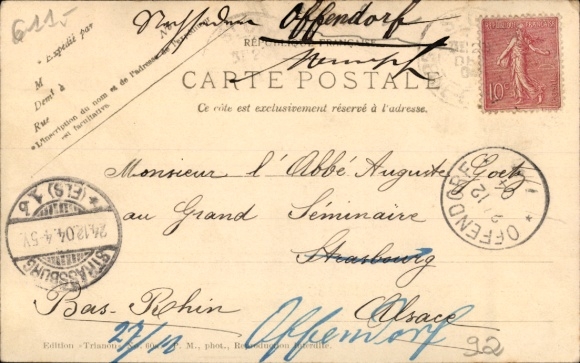 6115
Offendorf
RÉPUBLIQUE FRANÇAISE
10
CARTE POSTALE
Ce côté est exclusivement réservé à l'adresse.
Expédié par
M
Demt à
Rue
*L'inscription du nom et de l'adresse de
est facultative.
Monsieur l'Abbé Auguste Goetz
au Grand Séminaire
Strasbourg
Bas-Rhin Alsace
27/12 Offendorf
92
STRASSBURG
24.12.04. 4-5N.
*(ELS.) 1 b
OFFENDORF
12
04
Edition "Trianon" No. M., phot., Reproduction interdite.